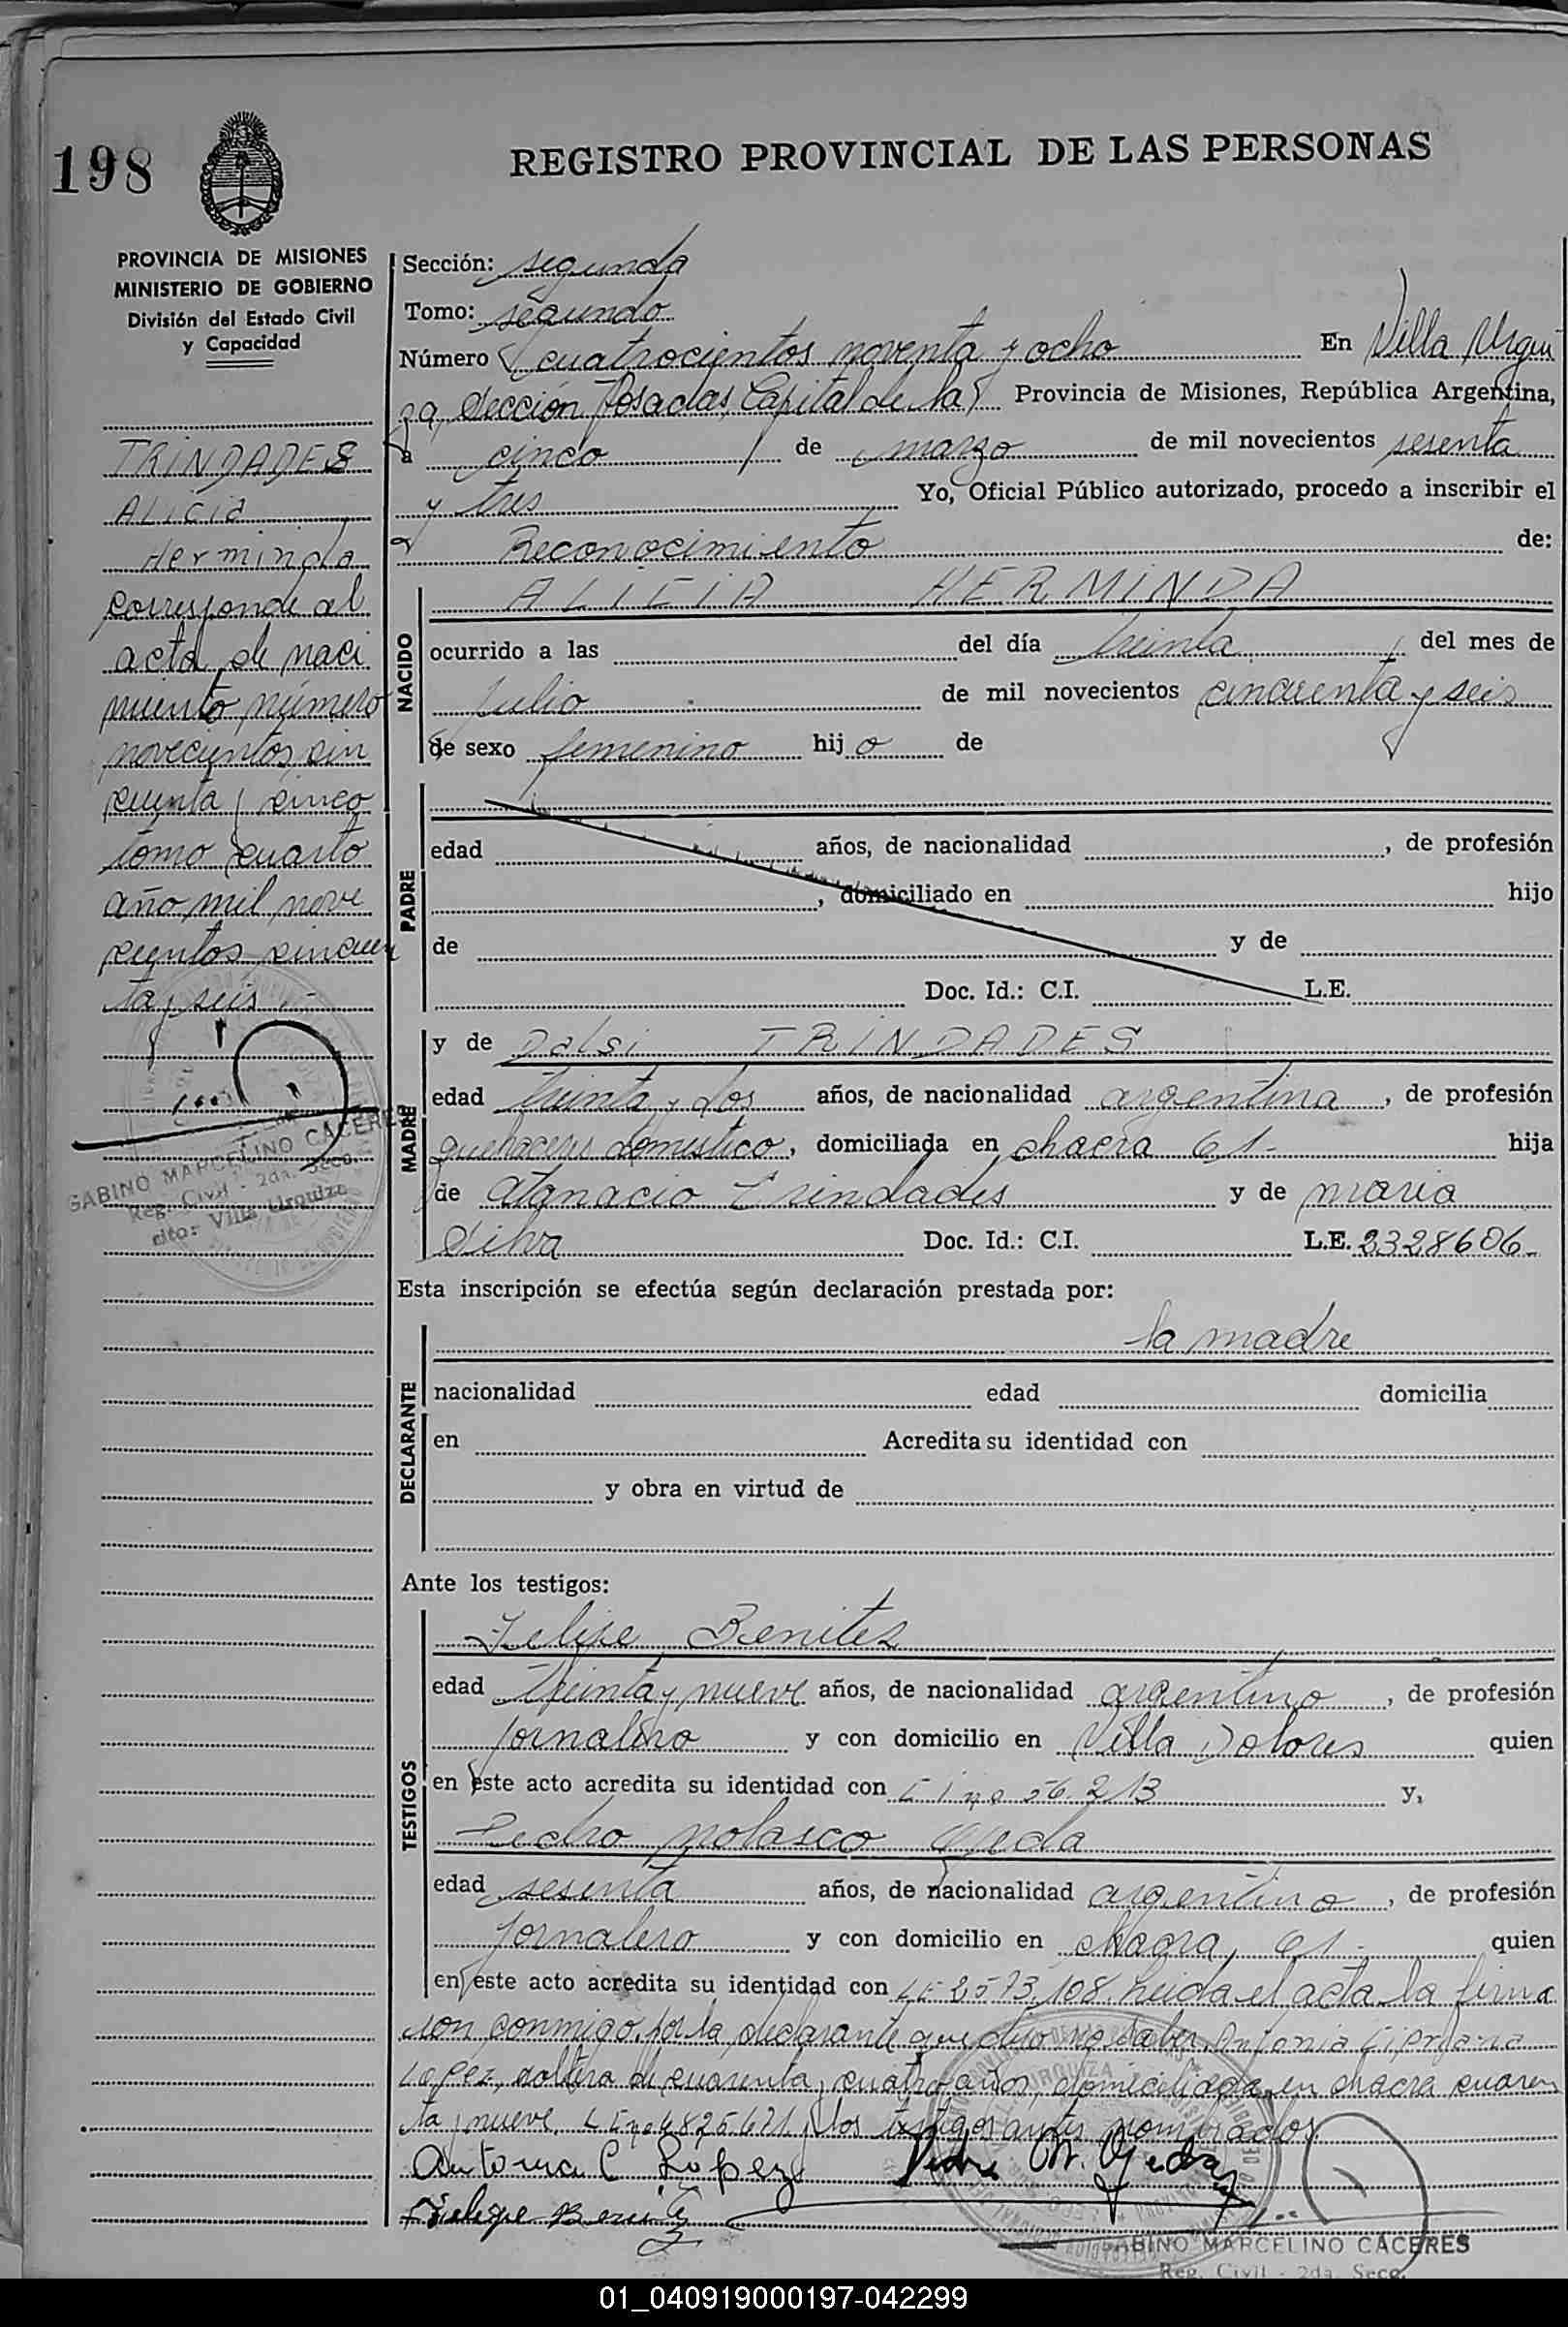 198
REGISTRO PROVINCIAL DE LAS PERSONAS
PROVINCIA DE MISIONES
MINISTERIO DE GOBIERNO
División del Estado Civil
y Capacidad
TRINDADES
Alicia
Herminda
corresponde al
acta de naci
miento número
novecientos cin
cuenta y cinco
tomo cuarto
año mil nove
cientos cincuen
ta y seis.-
GABINO MARCELINO CACERES
Reg. Civil - 2da. Secc.
Villa Urquiza
Sección: segunda
Tomo: segundo
Número cuatrocientos noventa y ocho En Villa Urqui
za, Sección Posadas, Capital de la Provincia de Misiones, República Argentina,
a cinco de marzo de mil novecientos sesenta
y tres Yo, Oficial Público autorizado, procedo a inscribir el
Reconocimiento de:
NACIDO
ALICIA HERMINDA
ocurrido a las del día treinta del mes de
julio de mil novecientos cincuenta y seis
de sexo femenino hijo de
PADRE
edad años, de nacionalidad , de profesión
, domiciliado en hijo
de y de
Doc. Id.: C.I. L.E.
MADRE
y de Dalsi TRINDADES
edad treinta y dos años, de nacionalidad argentina, de profesión
quehaceres domestico, domiciliada en chacra 61- hija
de Atanacio Trindades y de maria
Silva Doc. Id.: C.I. L.E. 2328606-
Esta inscripción se efectúa según declaración prestada por:
DECLARANTE
la madre
nacionalidad edad domicilia
en Acredita su identidad con
y obra en virtud de
Ante los testigos:
TESTIGOS
Felipe Benitez
edad treinta y nueve años, de nacionalidad argentino, de profesión
jornalero y con domicilio en Villa Dolores quien
en este acto acredita su identidad con 56.213 y,
Pedro Nolasco Ojeda
edad sesenta años, de nacionalidad argentino, de profesión
jornalero y con domicilio en chacra, 61- quien
en este acto acredita su identidad con LE 2573.108. Leida el acta la firma
ron conmigo, por la declarante que dijo no saber, Antonia Cipriana
Lopez, soltera de cuarenta y cuatro años, domiciliada en chacra cuaren
ta y nueve, y los testigos antes nombrados.
Antonia C Lopez Pedro N. Ojeda
Felipe Benitez
GABINO MARCELINO CACERES
Reg. Civil - 2da. Secc.
01_040919000197-042299